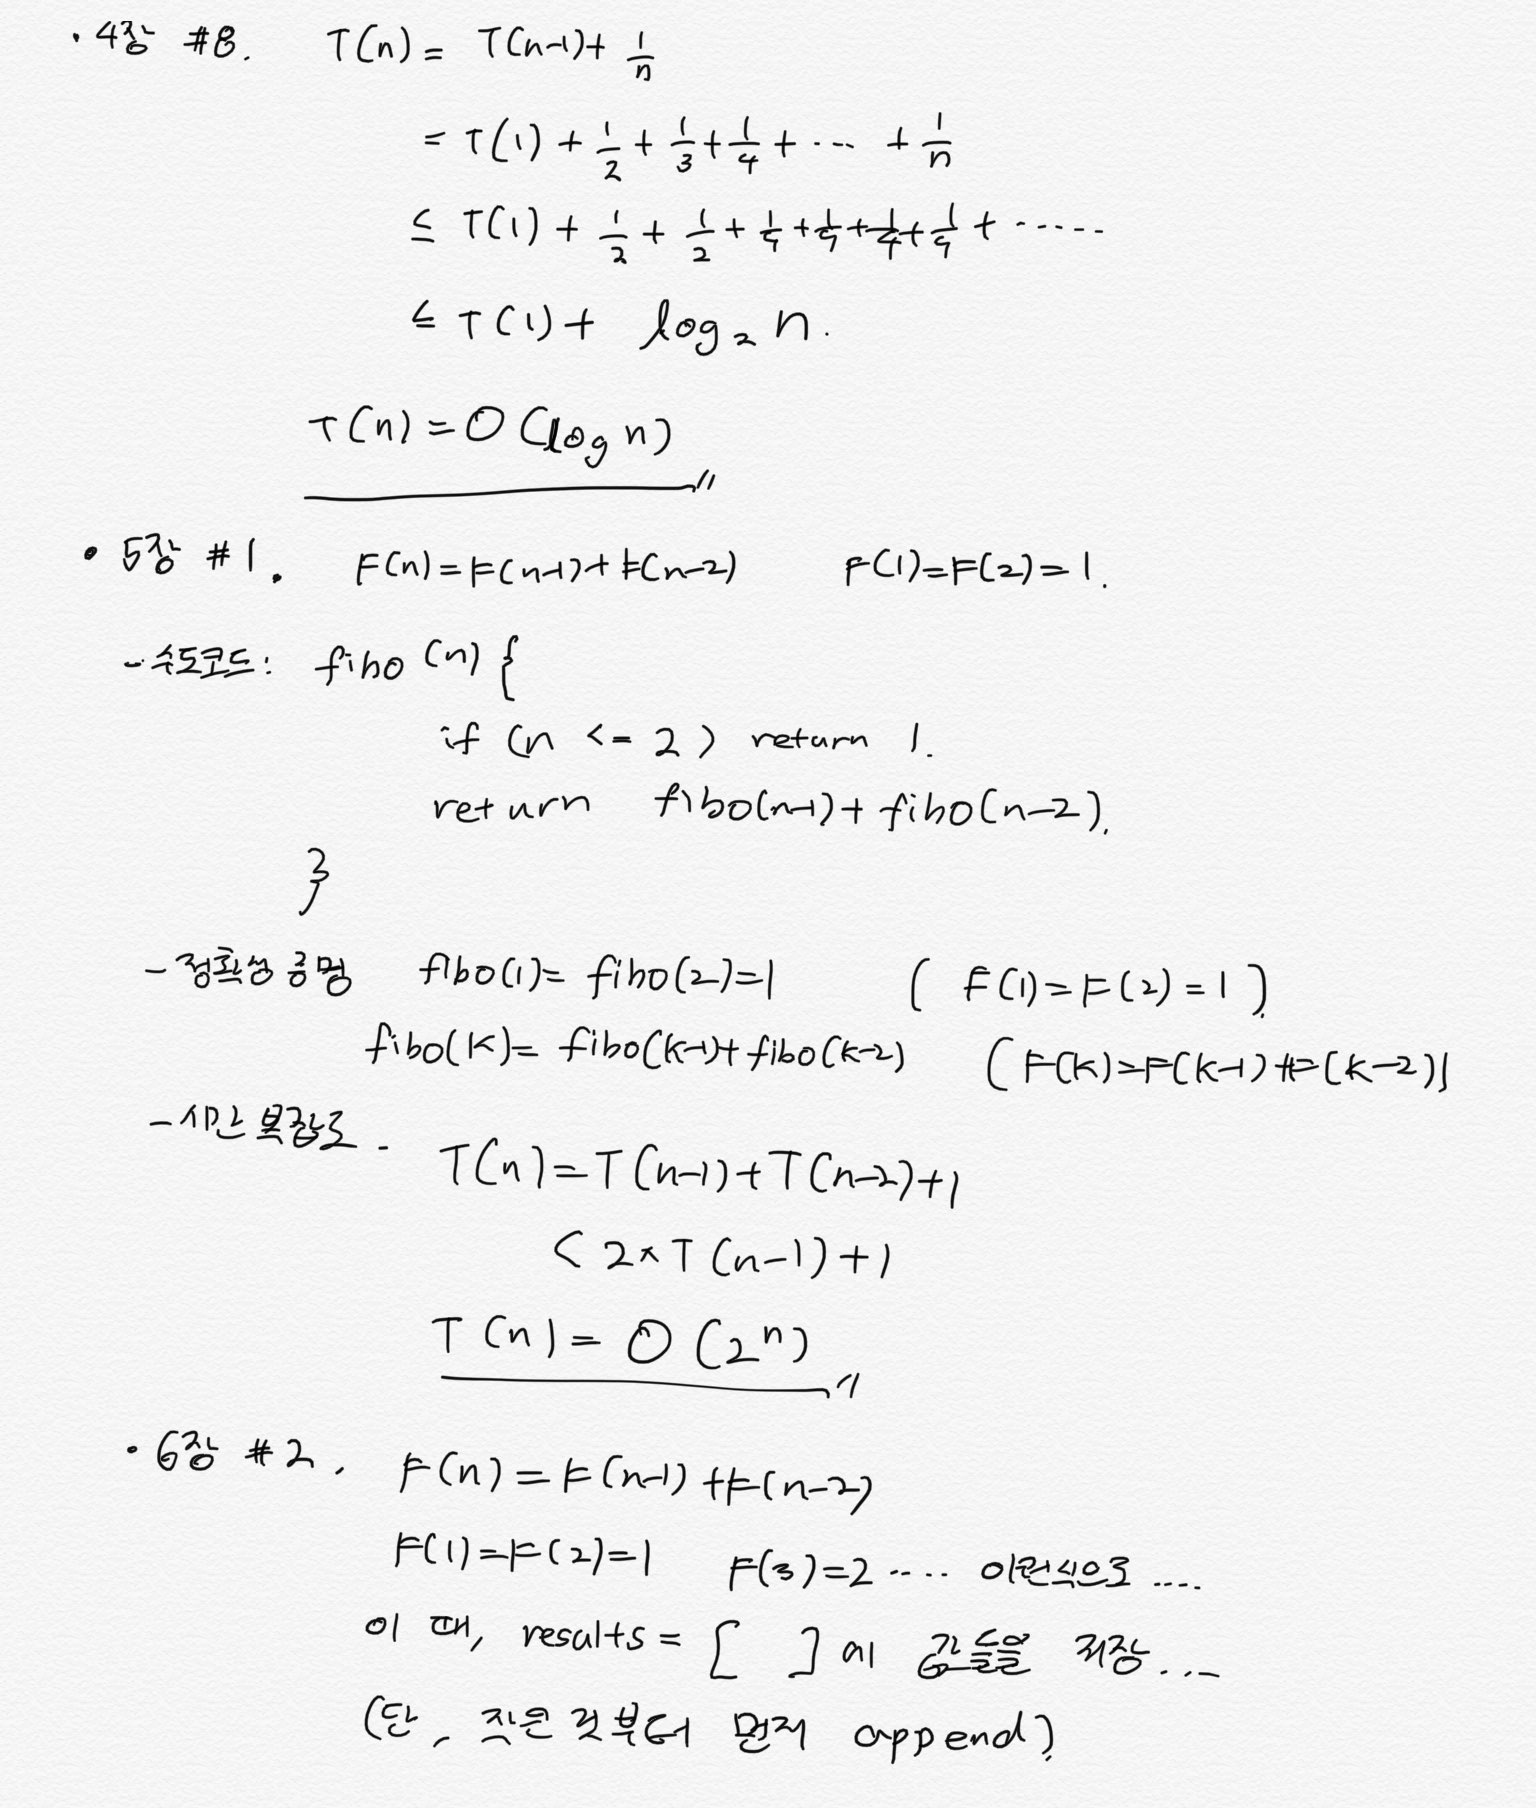 · 4장 #8. T(n) = T(n-1) + 1/n
= T(1) + 1/2 + 1/3 + 1/4 + ... + 1/n
≤ T(1) + 1/2 + 1/2 + 1/4 + 1/4 + 1/4 + 1/4 + ......
≤ T(1) + log₂ n.
T(n) = O(log n)〃
· 5장 #1. F(n) = F(n-1) + F(n-2) F(1) = F(2) = 1.
- 수도코드: fibo (n) {
if (n <= 2) return 1.
return fibo(n-1) + fibo(n-2).
}
- 정확성 증명 fibo(1) = fibo(2) = 1 ( F(1) = F(2) = 1 ).
fibo(k) = fibo(k-1) + fibo(k-2) (F(k) = F(k-1) + F(k-2))
- 시간 복잡도. T(n) = T(n-1) + T(n-2) + 1
< 2 × T(n-1) + 1
T(n) = O(2ⁿ)〃
· 6장 #2. F(n) = F(n-1) + F(n-2)
F(1) = F(2) = 1 F(3) = 2 .... 이런식으로 ....
이 때, results = [ ] 에 값들을 저장...
(단, 작은 것부터 먼저 append).